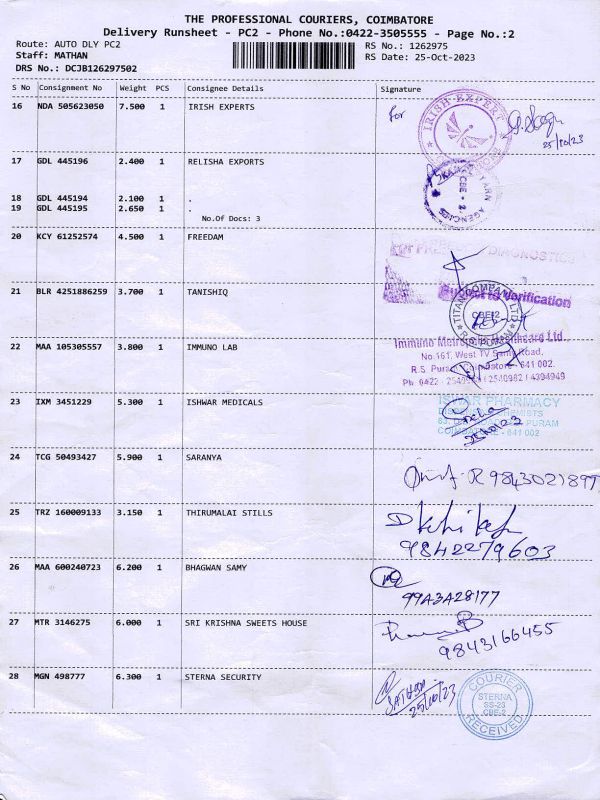 THE PROFESSIONAL COURIERS, COIMBATORE
Delivery Runsheet - PC2 - Phone No.:0422-3505555 - Page No.:2
Route: AUTO DLY PC2
Staff: MATHAN
DRS No.: DCJB126297502
RS No.: 1262975
RS Date: 25-Oct-2023
S No Consignment No Weight PCS Consignee Details Signature
16 NDA 505623050 7.500 1 IRISH EXPERTS
for
IRISH EXPERT
25/10/23
17 GDL 445196 2.400 1 RELISHA EXPORTS
YARN AGENCIES
CBE - 2
18 GDL 445194 2.100 1 .
19 GDL 445195 2.650 1 .
No.Of Docs: 3
20 KCY 61252574 4.500 1 FREEDAM
For DIAGNOSTICS
Subject to Verification
21 BLR 4251886259 3.700 1 TANISHIQ
TITAN COMPANY LTD
CBE-2
22 MAA 105305557 3.800 1 IMMUNO LAB
Immuno Healthcare Ltd
No.161, West TV Samy Road,
R.S. Puram, Coimbatore - 641 002.
Ph: 0422 - 2540982 / 4394949
23 IXM 3451229 5.300 1 ISHWAR MEDICALS
ISWAR PHARMACY
CHEMISTS
PURAM
COIMBATORE - 641 002
24 TCG 50493427 5.900 1 SARANYA
9843021897
25 TRZ 160009133 3.150 1 THIRUMALAI STILLS
9842279603
26 MAA 600240723 6.200 1 BHAGWAN SAMY
99A3A28177
27 MTR 3146275 6.000 1 SRI KRISHNA SWEETS HOUSE
9843166455
28 MGN 498777 6.300 1 STERNA SECURITY
25/10/23
COURIER
STERNA
SS-23
CBE-2
RECEIVED